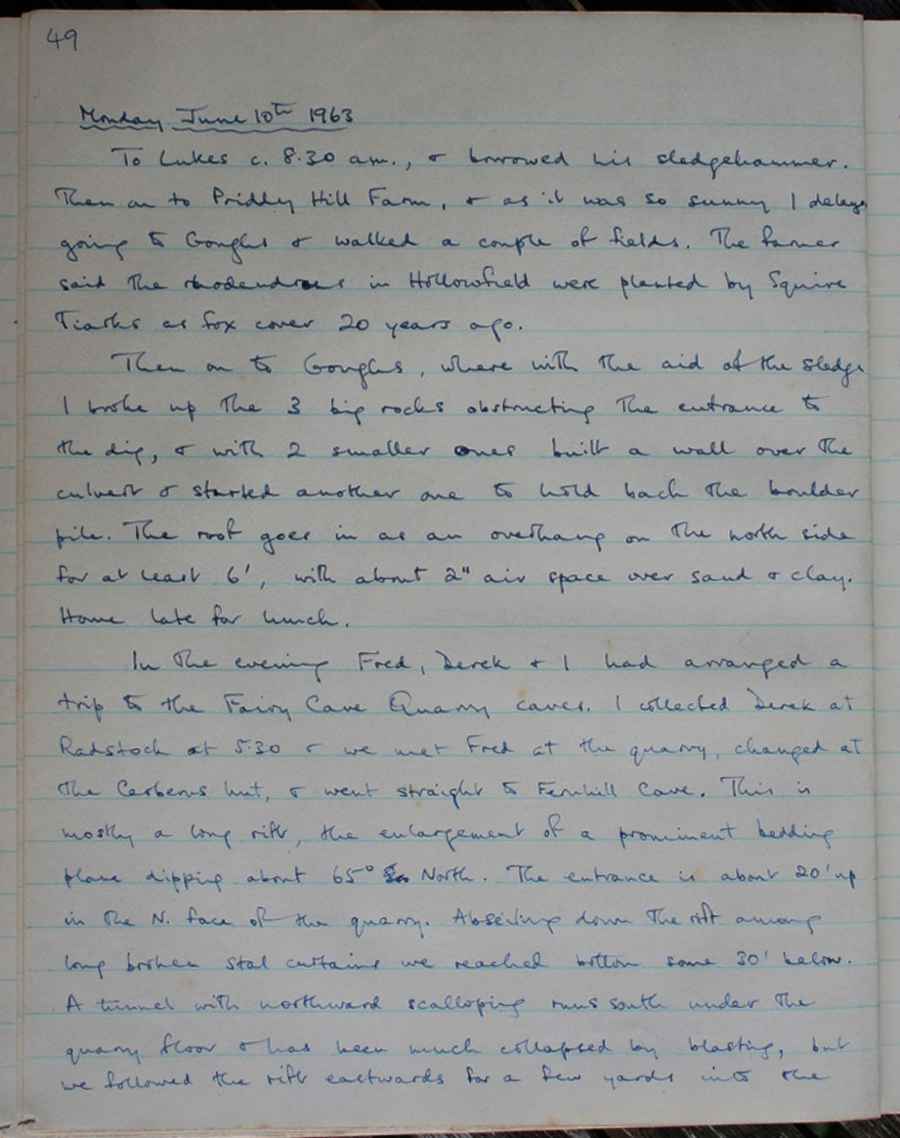 49
Monday June 10th 1963
To Lukes c. 8.30 a.m., & borrowed his sledgehammer.
Then on to Priddy Hill Farm, & as it was so sunny I delay
going to Goughs & walked a couple of fields. The farmer
said the rhododendrons in Hollowfield were planted by Squire
Tiarks as fox cover 20 years ago.
Then on to Goughs, where with the aid of the sledge
I broke up the 3 big rocks obstructing the entrance to
the dig, & with 2 smaller ones built a wall over the
culvert & started another one to hold back the boulder
pile. The roof goes in as an overhang on the north side
for at least 6', with about 2" air space over sand & clay.
Home late for lunch.
In the evening Fred, Derek & I had arranged a
trip to the Fairy Cave Quarry caves. I collected Derek at
Radstock at 5.30 & we met Fred at the quarry, changed at
the Cerberus hut, & went straight to Fernhill Cave. This is
mostly a long rift, the enlargement of a prominent bedding
plane dipping about 65° North. The entrance is about 20' up
in the N. face of the quarry. Abseiling down the rift among
long broken stal curtains we reached bottom some 30' below.
A tunnel with northward scalloping runs south under the
quarry floor & has been much collapsed by blasting, but
we followed the rift eastwards for a few yards into the